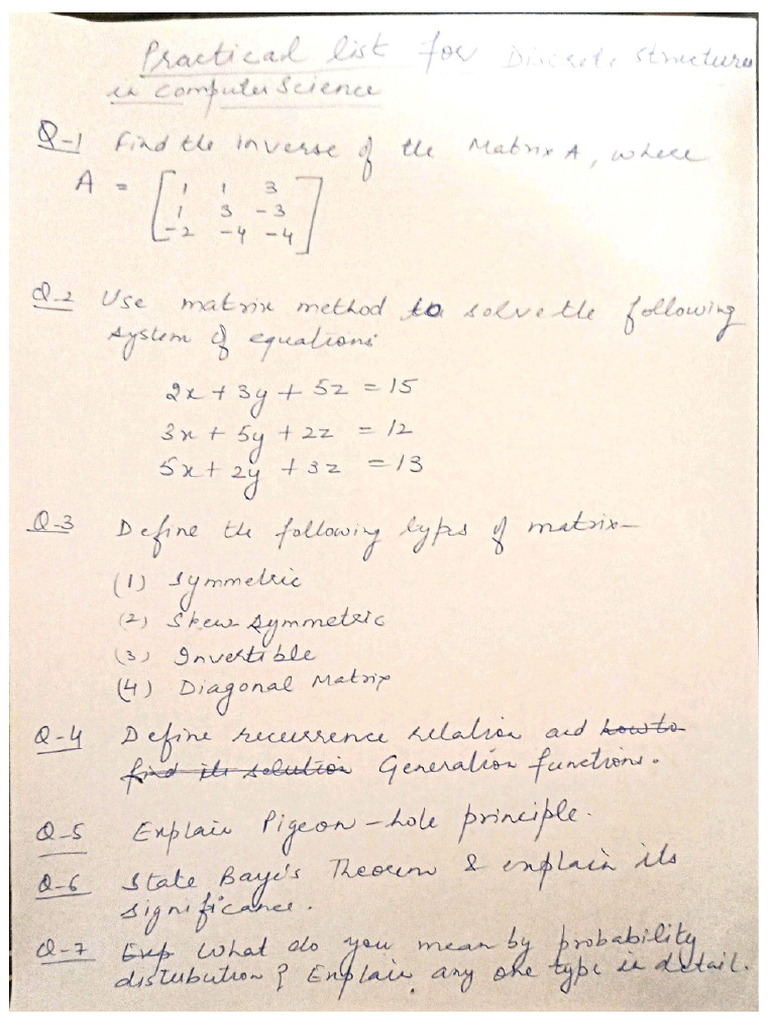 Practical list for Discrete Structures
in computer Science
Q-1 Find the inverse of the Matrix A, where
A = [1 1 3
1 3 -3
-2 -4 -4]
Q-2 Use matrix method to solve the following
system of equations
2x + 3y + 5z = 15
3x + 5y + 2z = 12
5x + 2y + 3z = 13
Q-3 Define the following types of matrix-
(1) Symmetric
(2) Skew Symmetric
(3) Invertible
(4) Diagonal Matrix
Q-4 Define recurrence relation and how to
find its solution Generation functions.
Q-5 Explain Pigeon-hole principle.
Q-6 State Baye's Theorem & explain its
significance.
Q-7 Exp What do you mean by probability
distribution? Explain any one type in detail.